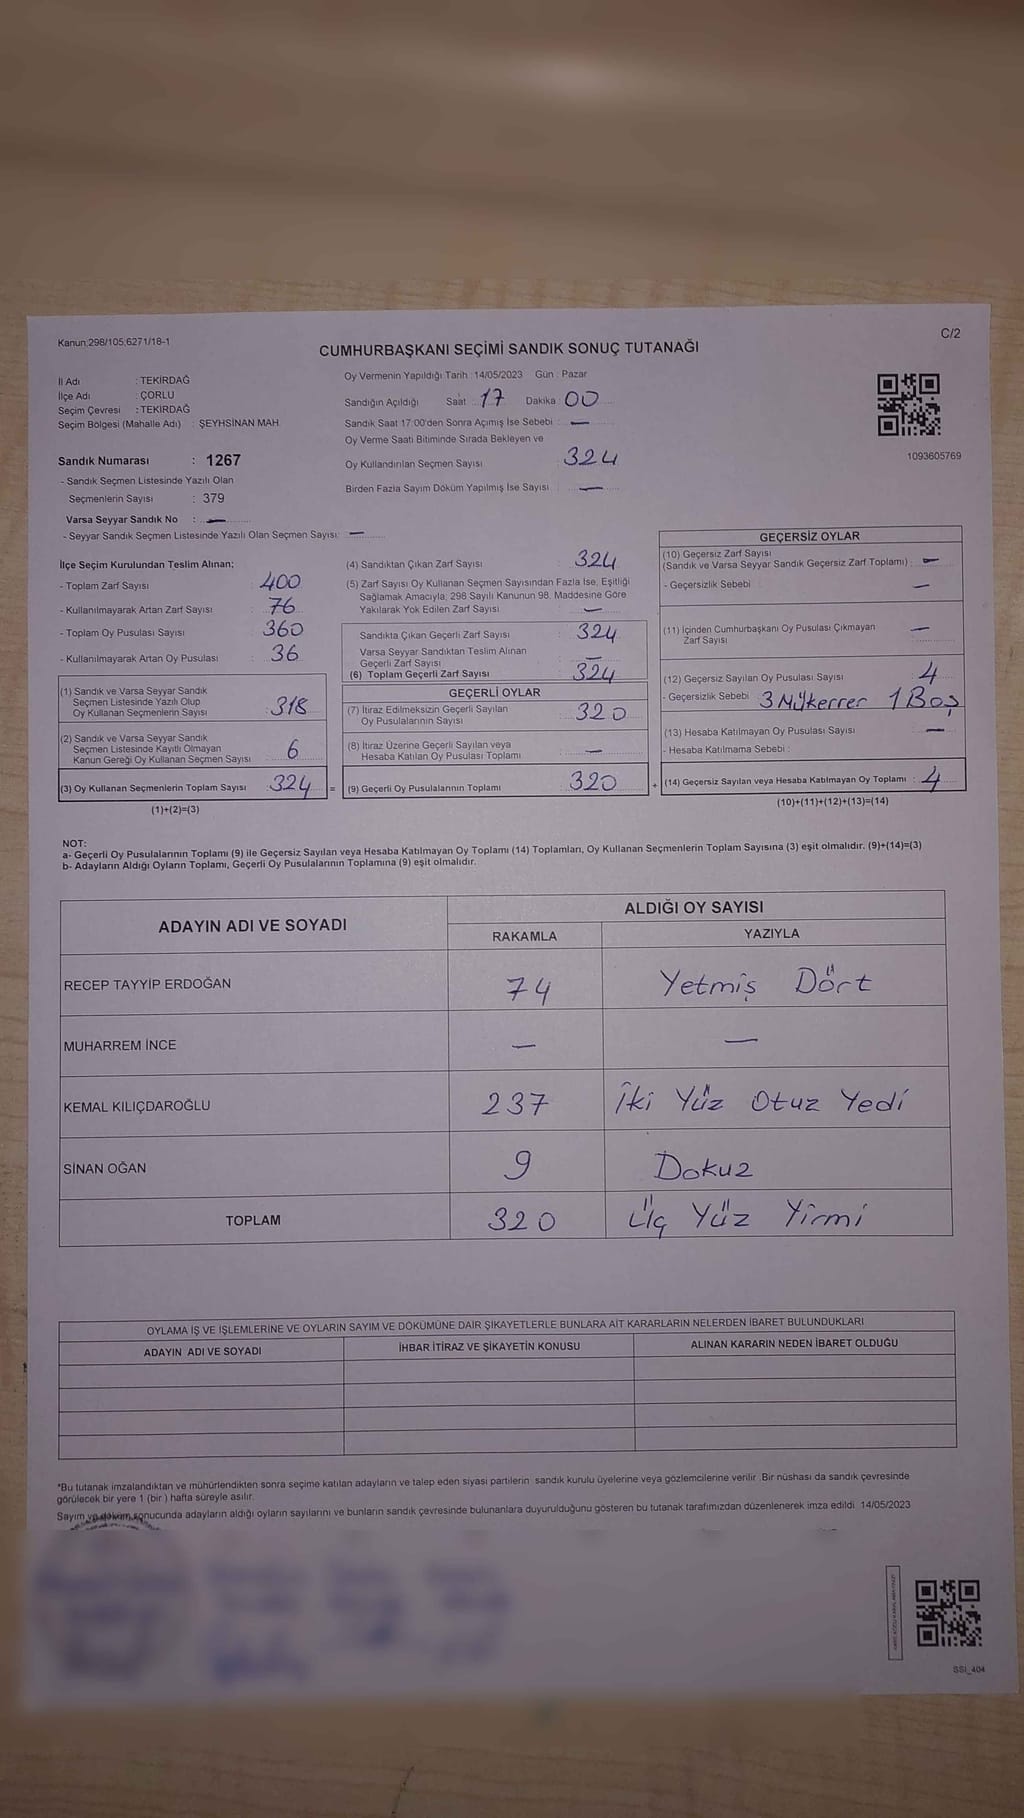 Kanun:298/105,6271/18-1
C/2
CUMHURBAŞKANI SEÇİMİ SANDIK SONUÇ TUTANAĞI
İl Adı : TEKİRDAĞ
İlçe Adı : ÇORLU
Seçim Çevresi : TEKİRDAĞ
Seçim Bölgesi (Mahalle Adı) : ŞEYHSİNAN MAH.
Sandık Numarası : 1267
- Sandık Seçmen Listesinde Yazılı Olan
Seçmenlerin Sayısı : 379
Varsa Seyyar Sandık No : —
- Seyyar Sandık Seçmen Listesinde Yazılı Olan Seçmen Sayısı: —
Oy Vermenin Yapıldığı Tarih : 14/05/2023 Gün : Pazar
Sandığın Açıldığı Saat : 17 Dakika : 00
Sandık Saat 17:00'den Sonra Açımış İse Sebebi : —
Oy Verme Saati Bitiminde Sırada Bekleyen ve
Oy Kullandırılan Seçmen Sayısı : 324
Birden Fazla Sayım Döküm Yapılmış İse Sayısı : —
1093605769
İlçe Seçim Kurulundan Teslim Alınan;
- Toplam Zarf Sayısı : 400
- Kullanılmayarak Artan Zarf Sayısı : 76
- Toplam Oy Pusulası Sayısı : 360
- Kullanılmayarak Artan Oy Pusulası : 36
(1) Sandık ve Varsa Seyyar Sandık
Seçmen Listesinde Yazılı Olup
Oy Kullanan Seçmenlerin Sayısı : 318
(2) Sandık ve Varsa Seyyar Sandık
Seçmen Listesinde Kayıtlı Olmayan
Kanun Gereği Oy Kullanan Seçmen Sayısı : 6
(3) Oy Kullanan Seçmenlerin Toplam Sayısı : 324 =
(1)+(2)=(3)
(4) Sandıktan Çıkan Zarf Sayısı : 324
(5) Zarf Sayısı Oy Kullanan Seçmen Sayısından Fazla İse, Eşitliği
Sağlamak Amacıyla, 298 Sayılı Kanunun 98. Maddesine Göre
Yakılarak Yok Edilen Zarf Sayısı : —
Sandıkta Çıkan Geçerli Zarf Sayısı : 324
Varsa Seyyar Sandıktan Teslim Alınan
Geçerli Zarf Sayısı : —
(6) Toplam Geçerli Zarf Sayısı : 324
GEÇERLİ OYLAR
(7) İtiraz Edilmeksizin Geçerli Sayılan
Oy Pusulalarının Sayısı : 320
(8) İtiraz Üzerine Geçerli Sayılan veya
Hesaba Katılan Oy Pusulası Toplamı : —
(9) Geçerli Oy Pusulalarının Toplamı : 320 +
GEÇERSİZ OYLAR
(10) Geçersiz Zarf Sayısı
(Sandık ve Varsa Seyyar Sandık Geçersiz Zarf Toplamı) : —
- Geçersizlik Sebebi : —
(11) İçinden Cumhurbaşkanı Oy Pusulası Çıkmayan
Zarf Sayısı : —
(12) Geçersiz Sayılan Oy Pusulası Sayısı : 4
- Geçersizlik Sebebi : 3 Mükerrer 1 Boş
(13) Hesaba Katılmayan Oy Pusulası Sayısı : —
- Hesaba Katılmama Sebebi :
(14) Geçersiz Sayılan veya Hesaba Katılmayan Oy Toplamı : 4
(10)+(11)+(12)+(13)=(14)
NOT:
a- Geçerli Oy Pusulalarının Toplamı (9) ile Geçersiz Sayılan veya Hesaba Katılmayan Oy Toplamı (14) Toplamları, Oy Kullanan Seçmenlerin Toplam Sayısına (3) eşit olmalıdır. (9)+(14)=(3)
b- Adayların Aldığı Oyların Toplamı, Geçerli Oy Pusulalarının Toplamına (9) eşit olmalıdır.
ADAYIN ADI VE SOYADI
ALDIĞI OY SAYISI
RAKAMLA YAZIYLA
RECEP TAYYİP ERDOĞAN 74 Yetmiş Dört
MUHARREM İNCE — —
KEMAL KILIÇDAROĞLU 237 İki Yüz Otuz Yedi
SİNAN OĞAN 9 Dokuz
TOPLAM 320 Üç Yüz Yirmi
OYLAMA İŞ VE İŞLEMLERİNE VE OYLARIN SAYIM VE DÖKÜMÜNE DAİR ŞİKAYETLERLE BUNLARA AİT KARARLARIN NELERDEN İBARET BULUNDUKLARI
ADAYIN ADI VE SOYADI İHBAR İTİRAZ VE ŞİKAYETİN KONUSU ALINAN KARARIN NEDEN İBARET OLDUĞU
*Bu tutanak imzalandıktan ve mühürlendikten sonra seçime katılan adayların ve talep eden siyasi partilerin sandık kurulu üyelerine veya gözlemcilerine verilir. Bir nüshası da sandık çevresinde
görülecek bir yere 1 (bir ) hafta süreyle asılır.
Sayım ve döküm sonucunda adayların aldığı oyların sayılarını ve bunların sandık çevresinde bulunanlara duyurulduğunu gösteren bu tutanak tarafımızdan düzenlenerek imza edildi. 14/05/2023
SSI_404